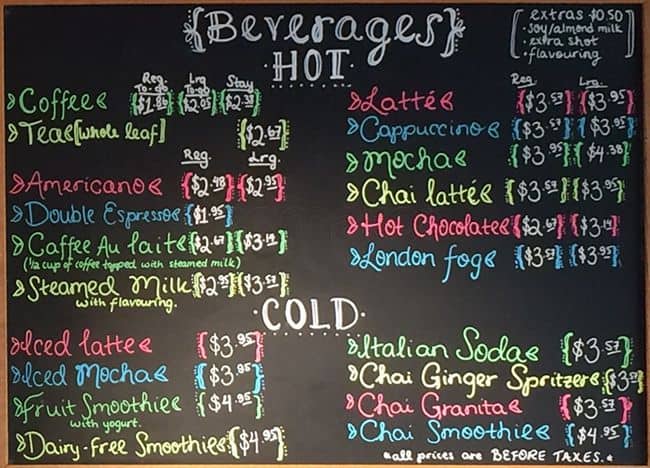 {Beverages}
extras $0.50
• soy/almond milk
• extra shot
• flavouring
HOT
Reg. To-go Lrg. To-go Stay
Coffee $2.05
Tea [whole leaf] $2.67
Reg. Lrg.
Americano $2.48 $2.95
Double Espresso $1.95
Caffee Au lait $2.67 $3.14
(1/2 cup of coffee topped with steamed milk)
Steamed Milk $2.95 $3.57
with flavouring.
Reg. Lrg.
Latté $3.57 $3.95
Cappuccino $3.57 $3.95
Mocha $3.95 $4.38
Chai latté $3.57 $3.95
Hot Chocolate $2.67 $3.14
London fog $3.57 $3.95
COLD
Iced latte $3.95
Iced Mocha $3.95
Fruit Smoothie $4.95
with yogurt.
Dairy-free Smoothie $4.95
Italian Soda $3.57
Chai Ginger Spritzer $3.57
Chai Granita $3.57
Chai Smoothie $4.95
*all prices are BEFORE TAXES.*